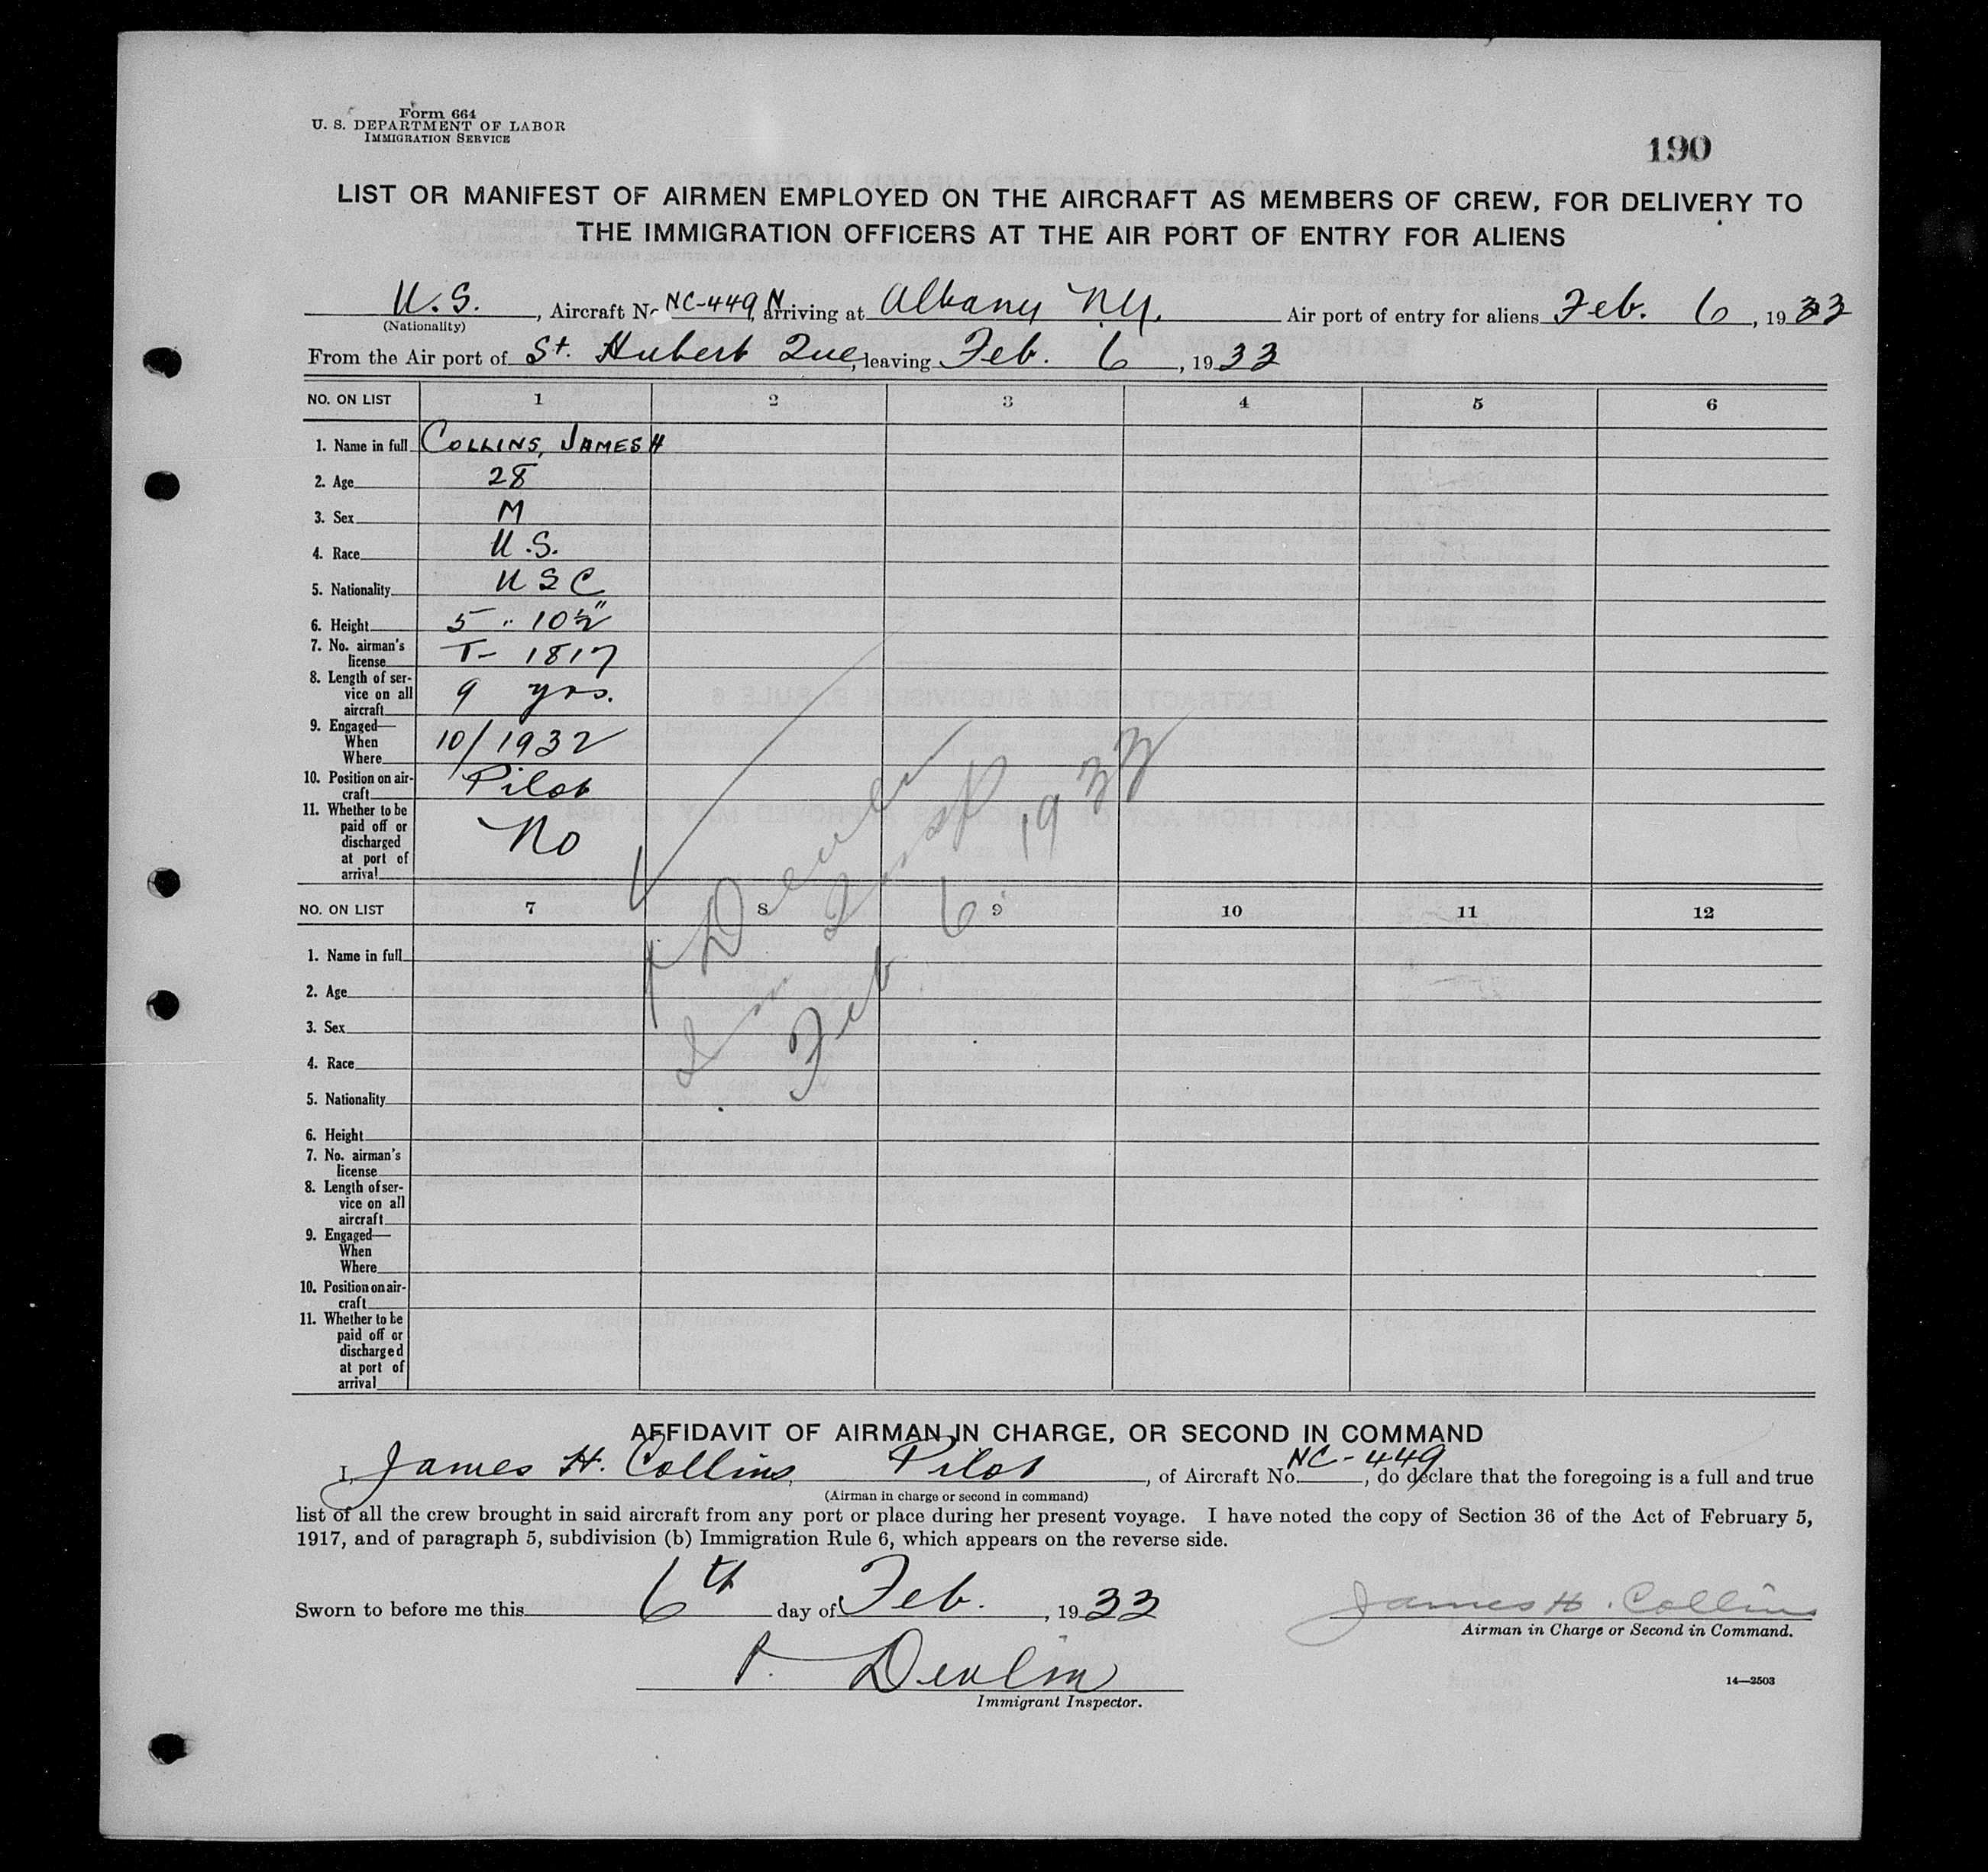 Form 664
U. S. DEPARTMENT OF LABOR
IMMIGRATION SERVICE
190
LIST OR MANIFEST OF AIRMEN EMPLOYED ON THE AIRCRAFT AS MEMBERS OF CREW, FOR DELIVERY TO
THE IMMIGRATION OFFICERS AT THE AIR PORT OF ENTRY FOR ALIENS
U.S., Aircraft No NC-449N, arriving at Albany N.Y. Air port of entry for aliens Feb. 6, 1933
(Nationality)
From the Air port of St. Hubert Que, leaving Feb. 6, 1933
NO. ON LIST 1 2 3 4 5 6
1. Name in full COLLINS, JAMES H
2. Age 28
3. Sex M
4. Race U.S.
5. Nationality USC
6. Height 5 " 10½"
7. No. airman's
license T- 1817
8. Length of ser-
vice on all
aircraft 9 yrs.
9. Engaged—
When 10/1932
Where
10. Position on air-
craft Pilot
11. Whether to be
paid off or
discharged
at port of
arrival No
P Devlin
Imm Insp
Feb 6 1933
NO. ON LIST 7 8 9 10 11 12
1. Name in full
2. Age
3. Sex
4. Race
5. Nationality
6. Height
7. No. airman's
license
8. Length of ser-
vice on all
aircraft
9. Engaged—
When
Where
10. Position on air-
craft
11. Whether to be
paid off or
discharged
at port of
arrival
AFFIDAVIT OF AIRMAN IN CHARGE, OR SECOND IN COMMAND
I, James H. Collins, Pilot, of Aircraft No. NC-449, do declare that the foregoing is a full and true
(Airman in charge or second in command)
list of all the crew brought in said aircraft from any port or place during her present voyage. I have noted the copy of Section 36 of the Act of February 5,
1917, and of paragraph 5, subdivision (b) Immigration Rule 6, which appears on the reverse side.
Sworn to before me this 6th day of Feb., 1933
James H. Collins
Airman in Charge or Second in Command.
P. Devlin
Immigrant Inspector.
14—2503